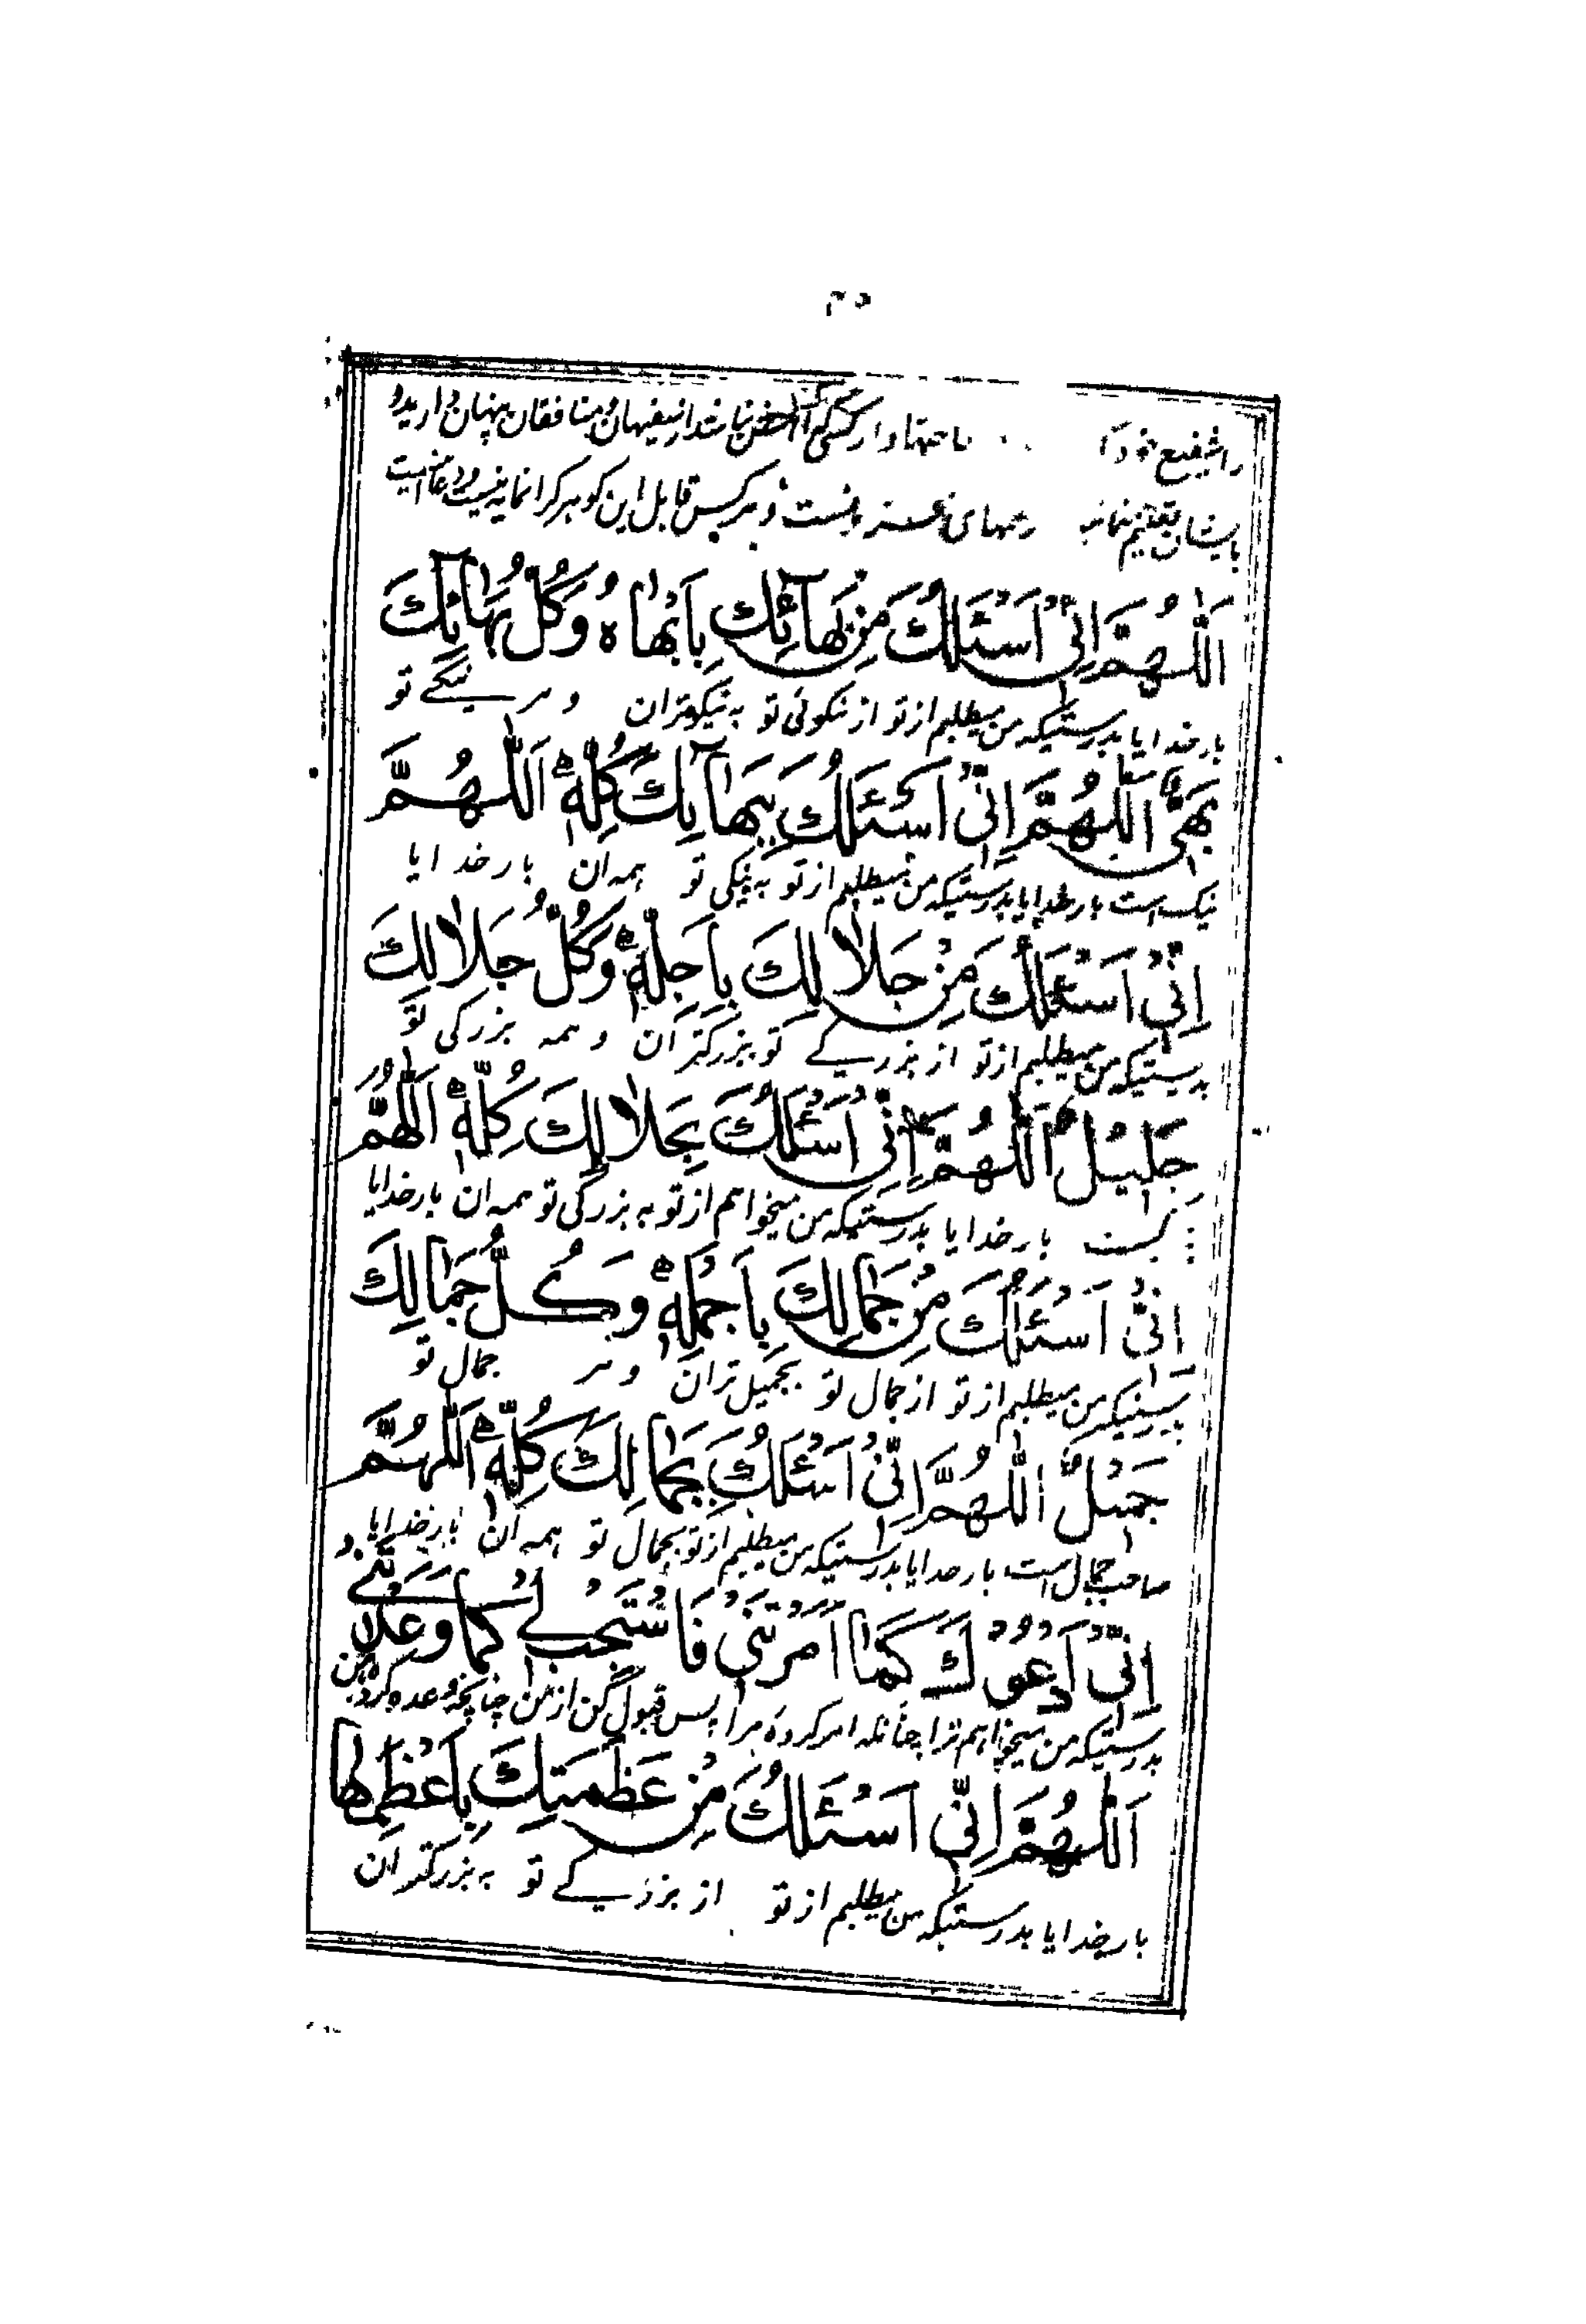 را شفیع خود ناحتها دار کسی سفیهان و منافقان پنهان دارید و
بایشان تعلیم ننمایید و هر کس قابل این کوهر کرانمایه نیست و دعا اینست
اَللّٰهُمَّ اِنِّیْ اَسْئَلُكَ مِنْ بَهَآئِكَ بِاَبْهَاهُ وَكُلُّ بَهَآئِكَ
بار خدایا بدرستیکه من میطلبم از تو از نکوئی تو به نیکوتران و هر نیکے تو
بَهِیٌّ اَللّٰهُمَّ اِنِّیْ اَسْئَلُكَ بِبَهَآئِكَ كُلِّهٖ اَللّٰهُمَّ
نیک است بار خدایا بدرستیکه من میطلبم از تو به نیکی تو همه ان بار خدایا
اِنِّیْ اَسْئَلُكَ مِنْ جَلَالِكَ بِاَجَلِّهٖ وَكُلُّ جَلَالِكَ
بدرستیکه من میطلبم از تو از بزرگے تو بزرکتر ان و همه بزرکی تو
جَلِیْلٌ اَللّٰهُمَّ اِنِّیْ اَسْئَلُكَ بِجَلَالِكَ كُلِّهٖ اَللّٰهُمَّ
بار خدایا بدرستیکه من میخواهم از تو به بزرگی تو همه ان بار خدایا
اِنِّیْ اَسْئَلُكَ مِنْ جَمَالِكَ بِاَجْمَلِهٖ وَكُلُّ جَمَالِكَ
بدرستیکه من میطلبم از تو از جمال تو بجمیل تران و هر جمال تو
جَمِیْلٌ اَللّٰهُمَّ اِنِّیْ اَسْئَلُكَ بِجَمَالِكَ كُلِّهٖ اَللّٰهُمَّ
صاحب جمال است بار خدایا بدرستیکه من میطلبم از تو بجمال تو همه ان بار خدایا
اِنِّیْ اَدْعُوْكَ كَمَا اَمَرْتَنِیْ فَاسْتَجِبْ لِیْ كَمَا وَعَدْتَنِیْ
بدرستیکه من میخواهم ترا چنانکه امر کرده مرا پس قبول کن از من چنانچه وعده کرده بمن
اَللّٰهُمَّ اِنِّیْ اَسْئَلُكَ مِنْ عَظَمَتِكَ بِاَعْظَمِهَا
بار خدایا بدرستیکه من میطلبم از تو از بزرگے تو به بزرکتر ان